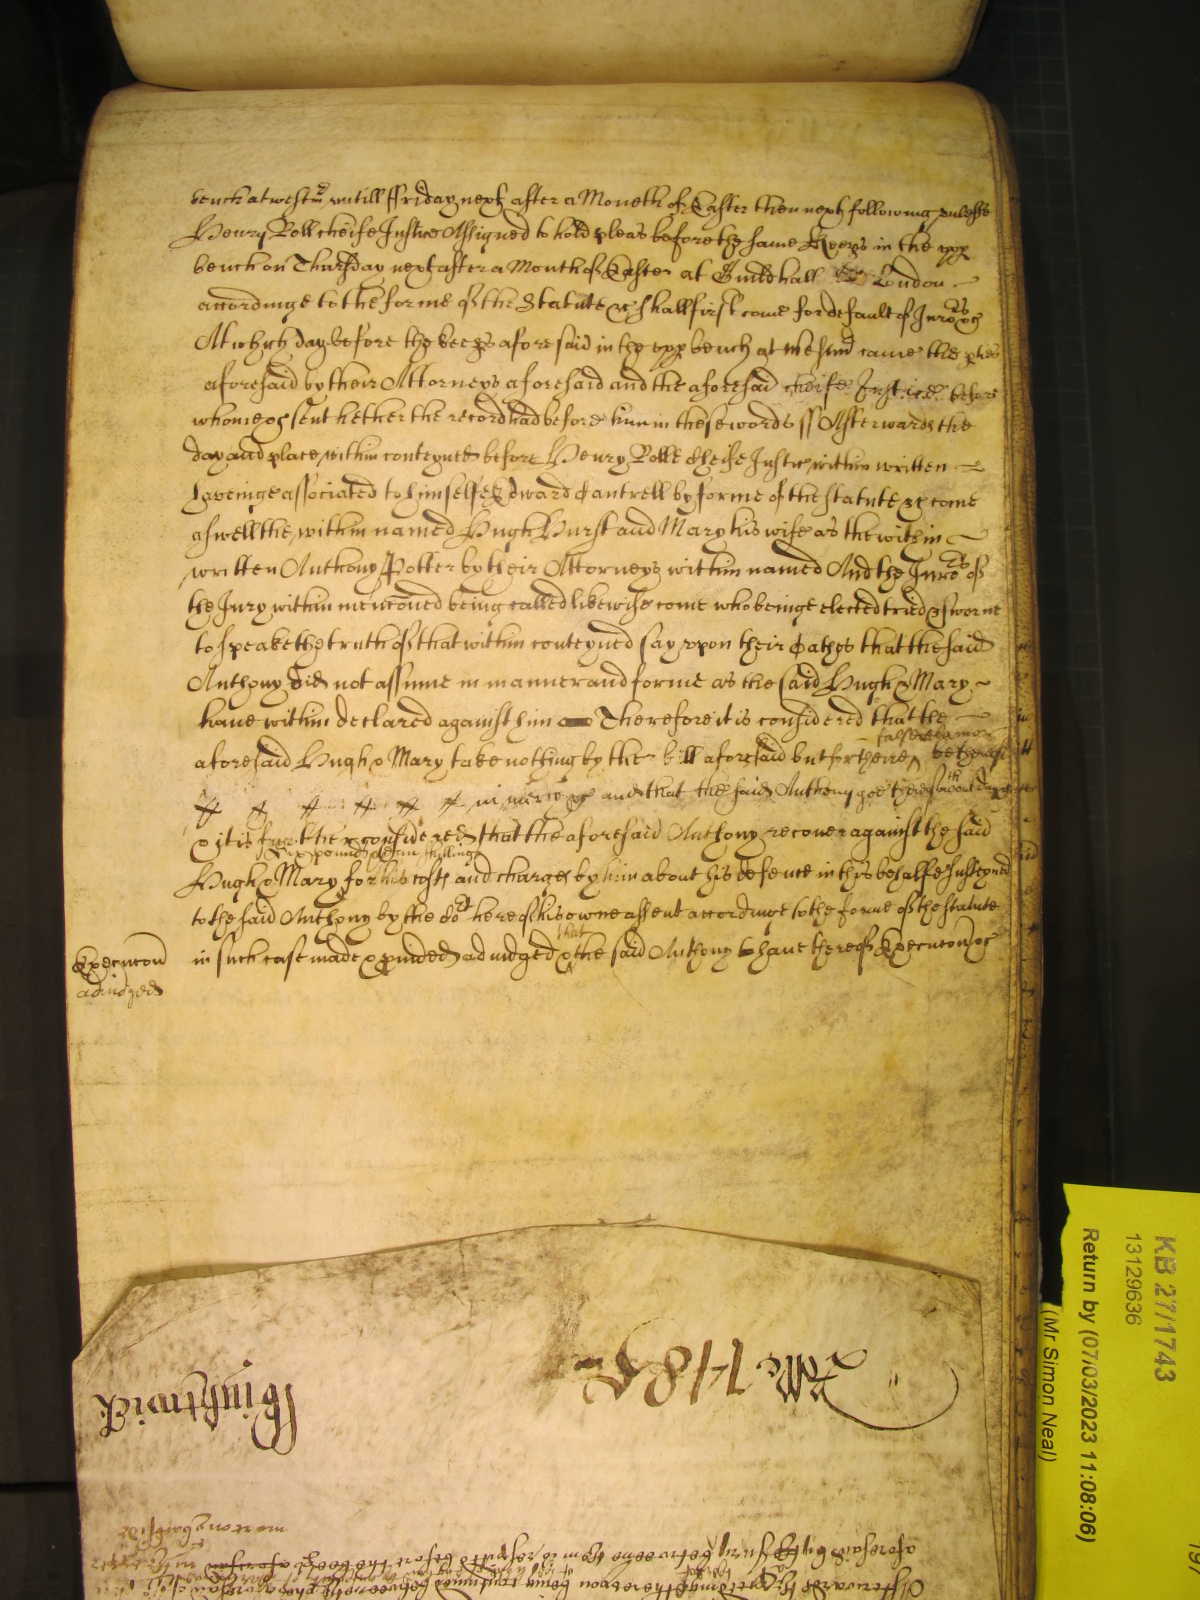 bench at westmr untill Ffriday next after a Moneth of Easter then next following unlesse
Henry Roll cheife Justice Assigned to hold pleas before the same Keeps in the upp
bench on Thursday next after a Month of Easter at Guildhall London
accordinge to the forme of the Statute &c shall first come for default of Juro rs &c
At which day before the keeps aforesaid in the upp bench at westmr came the pties
aforesaid by their Attorneys aforesaid and the aforesaid cheife Justice before
whome &c sent hether the record had before him in these words ss Afterwards the
day and place within conteyned before Henry Rolle Cheife Justice within written
haveinge associated to himselfe Edward Cantrell by forme of the statute &c come
aswell the within named Hugh Hurst and Mary his wife as the within
written Anthony Potter by their Attorneys within named And the Juro rs of
the Jury within mencioned being called likewise come who beinge elected tried & sworne
to speake the truth of that within conteyned say upon their Oathes that the said
Anthony did not assume in manner and forme as the said Hugh & Mary
have within declared against him Therefore it is considered that the
false clamor
aforesaid Hugh & Mary take nothing by the bill aforesaid but for their
in mercy &c and that the said Anthony goe thereof without day &c
& it is further considered that the aforesaid Anthony recover against the said
Hugh & Mary for his costs and charges by him about his defence in this behalfe susteyned
to the said Anthony by the Cort here of his owne assent accordinge to the forme of the statute
that
in such case made & pvided adiudged & the said Anthony to have thereof Execucon &c
Execucon
adiudged
Rolle 1485
Brightwick
KB 27/1743
13129636
Return by (07/03/2023 11:08:06)
(Mr Simon Neal)